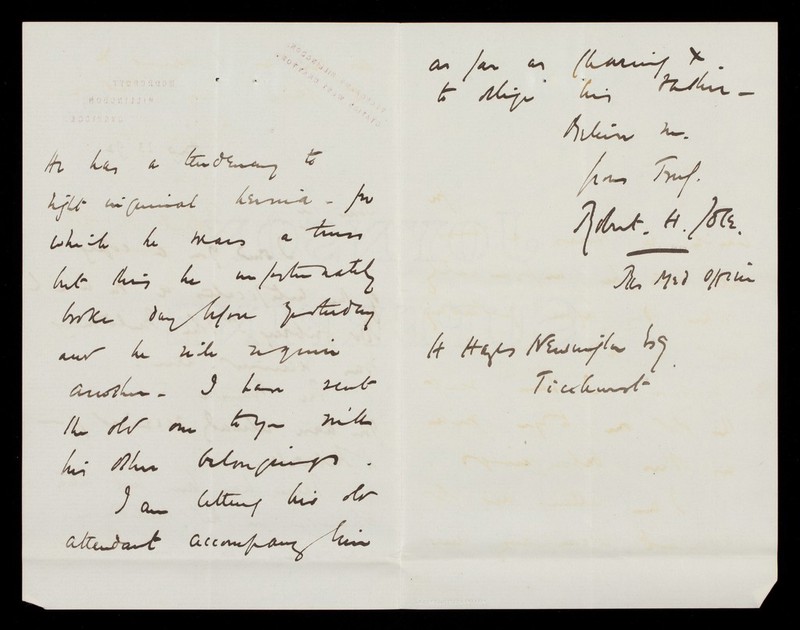 He has a tendency to
right inguinal hernia - for
which he wears a truss
but this he unfortunately
broke day before yesterday
and he will require
another - I have sent
the old one to you with
his other belongings.
I am letting his old
attendant accompany him
as far as Charing X.
to oblige his Father -
Believe me.
yours Truly.
Robert. H. Cole.
Res Med Officer
H Hayes Newington Esq
Ticehurst